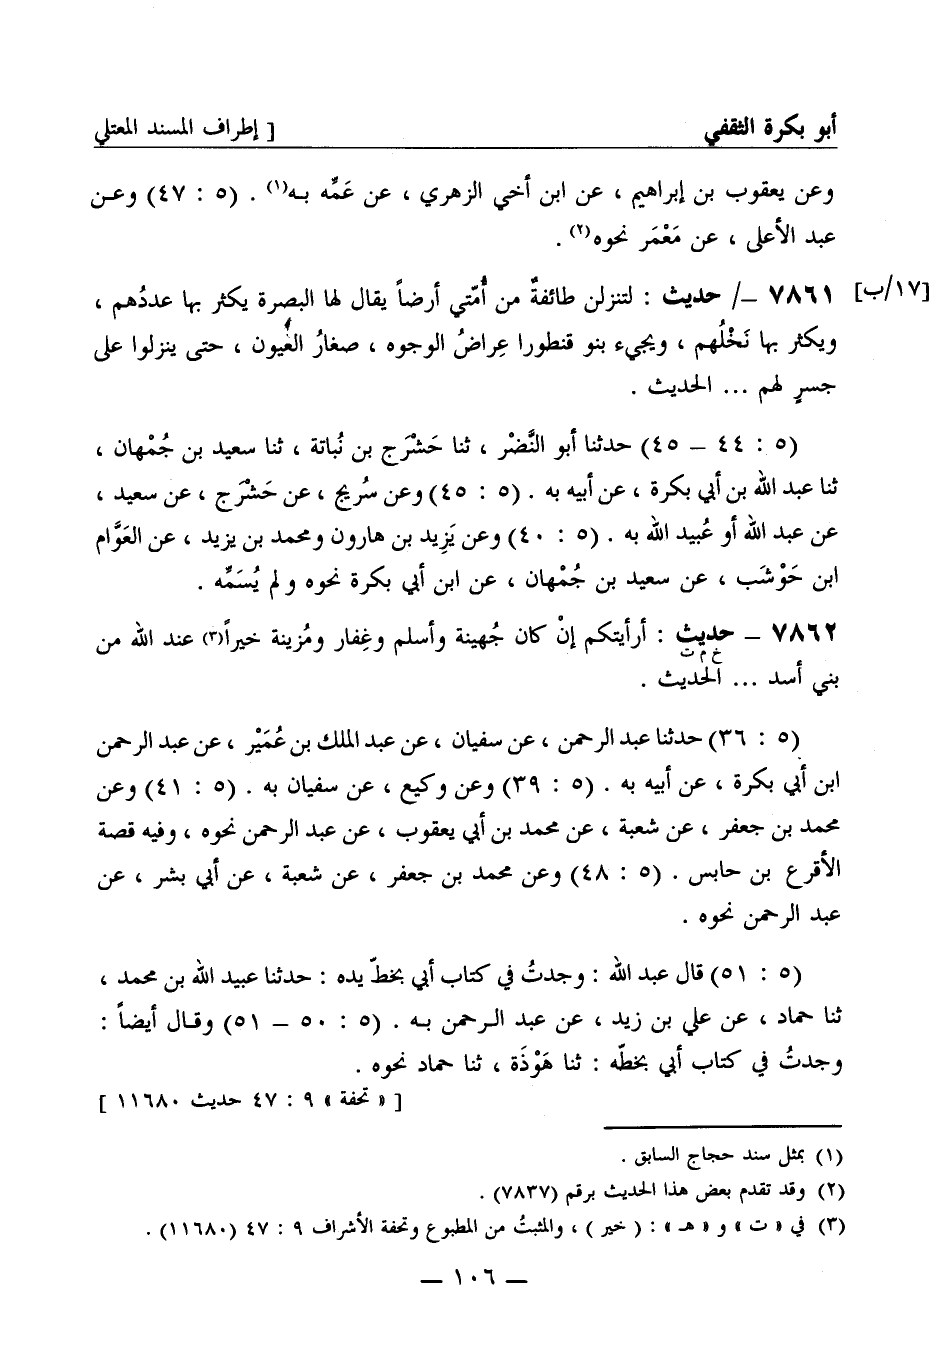 أبو بكرة الثقفي
[ إطراف المسند المعتلي
وعن يعقوب بن إبراهيم ، عن ابن أخي الزهري ، عن عَمِّه بـه(١) . (٥ : ٤٧) وعـن
عبد الأعلى ، عن مَعْمَر نحوه(٢) .
[١٧/ب]
٧٨٦١ ــ/ حديث : لتنزلن طائفةٌ من أُمّتي أرضاً يقال لها البصرة يكثر بها عددُهم ،
ويكثر بها نَخْلُهم ، ويجيء بنو قنطورا عِراضُ الوجوه ، صغارُ العُيون ، حتى ينزلوا على
جسرٍ لهم ... الحديث .
(٥ : ٤٤ ــ ٤٥) حدثنا أبو النَّضْر ، ثنا حَشْرَج بن نُباتة ، ثنا سعيد بن جُمْهان ،
ثنا عبد الله بن أبي بكرة ، عن أبيه به . (٥ : ٤٥) وعن سُريج ، عن حَشْرَج ، عن سعيد ،
عن عبد الله أو عُبيد الله به . (٥ : ٤٠) وعن يَزِيد بن هارون ومحمد بن يزيد ، عن العَوَّام
ابن حَوْشَب ، عن سعيد بن جُمْهان ، عن ابن أبي بكرة نحوه ولم يُسَمِّه .
٧٨٦٢ ــ حديث : أرأيتكم إنْ كان جُهينة وأسلم وغِفار ومُزينة خيراً(٣) عند الله من
خ م ت
بني أسد ... الحديث .
(٥ : ٣٦) حدثنا عبد الرحمن ، عن سفيان ، عن عبد الملك بن عُمَيْر ، عن عبد الرحمن
ابن أبي بكرة ، عن أبيه به . (٥ : ٣٩) وعن وكيع ، عن سفيان به . (٥ : ٤١) وعن
محمد بن جعفر ، عن شعبة ، عن محمد بن أبي يعقوب ، عن عبد الرحمن نحوه ، وفيه قصة
الأقرع بن حابس . (٥ : ٤٨) وعن محمد بن جعفر ، عن شعبة ، عن أبي بشر ، عن
عبد الرحمن نحوه .
(٥ : ٥١) قال عبد الله : وجدتُ في كتاب أبي بخطّ يده : حدثنا عبيد الله بن محمد ،
ثنا حماد ، عن علي بن زيد ، عن عبد الـرحمن بـه . (٥ : ٥٠ ــ ٥١) وقـال أيضاً :
وجدتُ في كتاب أبي بخطّه : ثنا هَوْذَة ، ثنا حماد نحوه .
[ « تحفة » ٩ : ٤٧ حديث ١١٦٨٠ ]
(١) بمثل سند حجاج السابق .
(٢) وقد تقدم بعض هذا الحديث برقم (٧٨٣٧) .
(٣) في « ت » و « هـ » : ( خير ) ، والمثبتُ من المطبوع وتحفة الأشراف ٩ : ٤٧ (١١٦٨٠) .
ــ ١٠٦ ــ